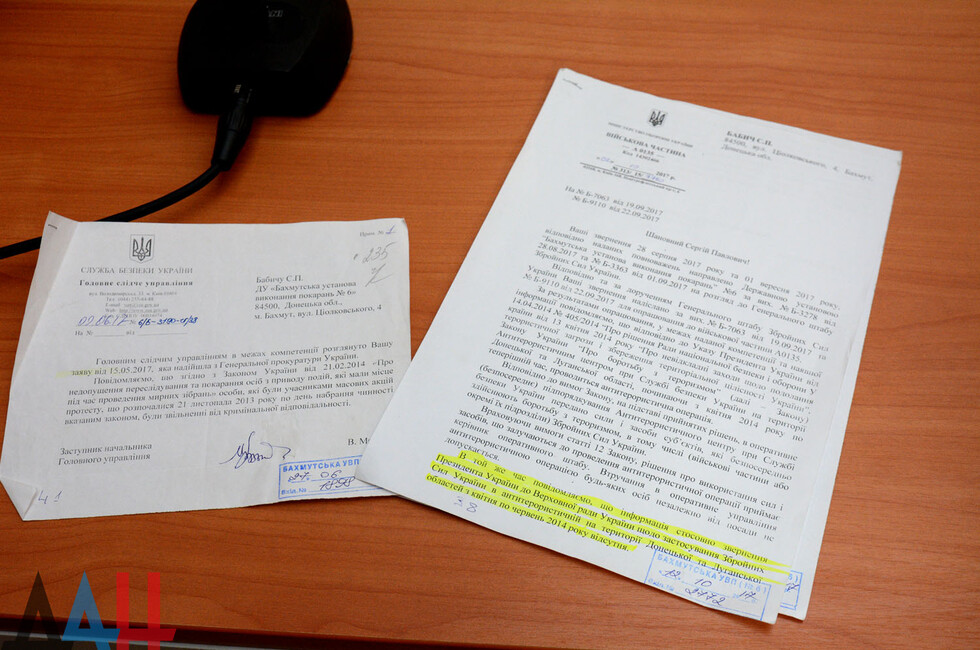 Прим. № 1
235
СЛУЖБА БЕЗПЕКИ УКРАЇНИ
Головне слідче управління
На №
Бабичу С.П.
ДУ «Бахмутська установа
виконання покарань № 6»
84500, Донецька обл.,
м. Бахмут, вул. Ціолковського, 4
Головним слідчим управлінням в межах компетенції розглянуто Вашу
заяву від 15.05.2017, яка надійшла з Генеральної прокуратури України.
Повідомляємо, що згідно з Законом України від 21.02.2014 «Про
недопущення переслідування та покарання осіб з приводу подій, які мали місце
під час проведення мирних зібрань» особи, які були учасниками масових акцій
протесту, що розпочалися 21 листопада 2013 року по день набрання чинності
вказаним законом, були звільненні від кримінальної відповідальності.
Заступник начальника
Головного управління
В. М
БАХМУТСЬКА УВП
27 06
Вхід. № 1898
41
МІНІСТЕРСТВО ОБОРОНИ УКРАЇНИ
ВІЙСЬКОВА ЧАСТИНА
А 0135
2017 р.
На № Б-7063 від 19.09.2017
№ Б-9110 від 22.09.2017
БАБИЧ С.П.
84500, вул. Ціолковського, 4, Бахмут,
Донецька обл.
Шановний Сергій Павлович!
Ваші звернення 28 серпня 2017 року та 01 вересня 2017 року,
відповідно наданих повноважень направлено Державною установою
"Бахмутська установа виконання покарань" №6 за вих. № Б-3278 від
28.08.2017 та № Б-3363 від 01.09.2017 на розгляд до Генерального штабу
Збройних Сил України.
Відповідно та за дорученням Генерального штабу Збройних Сил
України Ваші звернення надіслано за вих. № Б-7063 від 19.09.2017 та
№ Б-9110 від 22.09.2017 для опрацювання, у межах наданої компетенції
до військової частини А0135.
За результатами опрацювання
інформації повідомляємо, що відповідно до Указу Президента України від
14.04.2014 № 405/2014 "Про рішення Ради національної безпеки і оборони
України від 13 квітня 2014 року "Про невідкладні заходи щодо подолання
терористичної загрози і збереження територіальної цілісності України"
України "Про боротьбу з тероризмом" (далі – Закону)
Донецької та Луганської області, починаючи з квітня 2014 року по
теперішній час, проводиться антитерористична операція.
Відповідно до вимог Закону, на підставі прийнятих рішень, в оперативне
(безпосереднє) підпорядкування Антитерористичного центру при Службі
безпеки України передано сили і засоби суб'єктів, які безпосередньо
здійснюють боротьбу з тероризмом, а тому числі (військові частини або
окремі їх підрозділи) Збройних Сил України.
Враховуючи вимоги статті 12 Закону, рішення про використання сил і
засобів, що залучаються до проведення антитерористичної операції приймає
керівник оперативного штабу. Втручання в оперативне управління
антитерористичною операцією будь-яких осіб незалежно від посади не
допускається.
В той же час повідомляємо, що інформація стосовно звернення
Президента України до Верховної ради України щодо застосування Збройних
Сил України в антитерористичній на території Донецької та Луганської
областей з квітня по червень 2014 року відсутня.
38
БАХМУТСЬКА УВП (№6)
12 10 17
Вхід. № 2472
ДАН